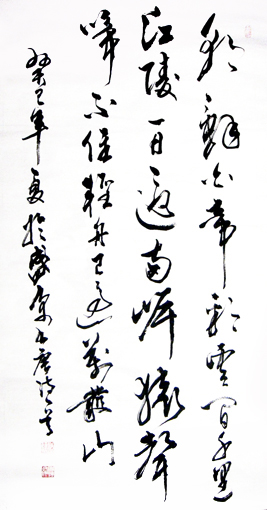 朝辭白帝彩雲間千里
江陵一日還兩岸猿聲
啼不住輕舟已過萬重山
癸巳年夏於盛京書唐詩